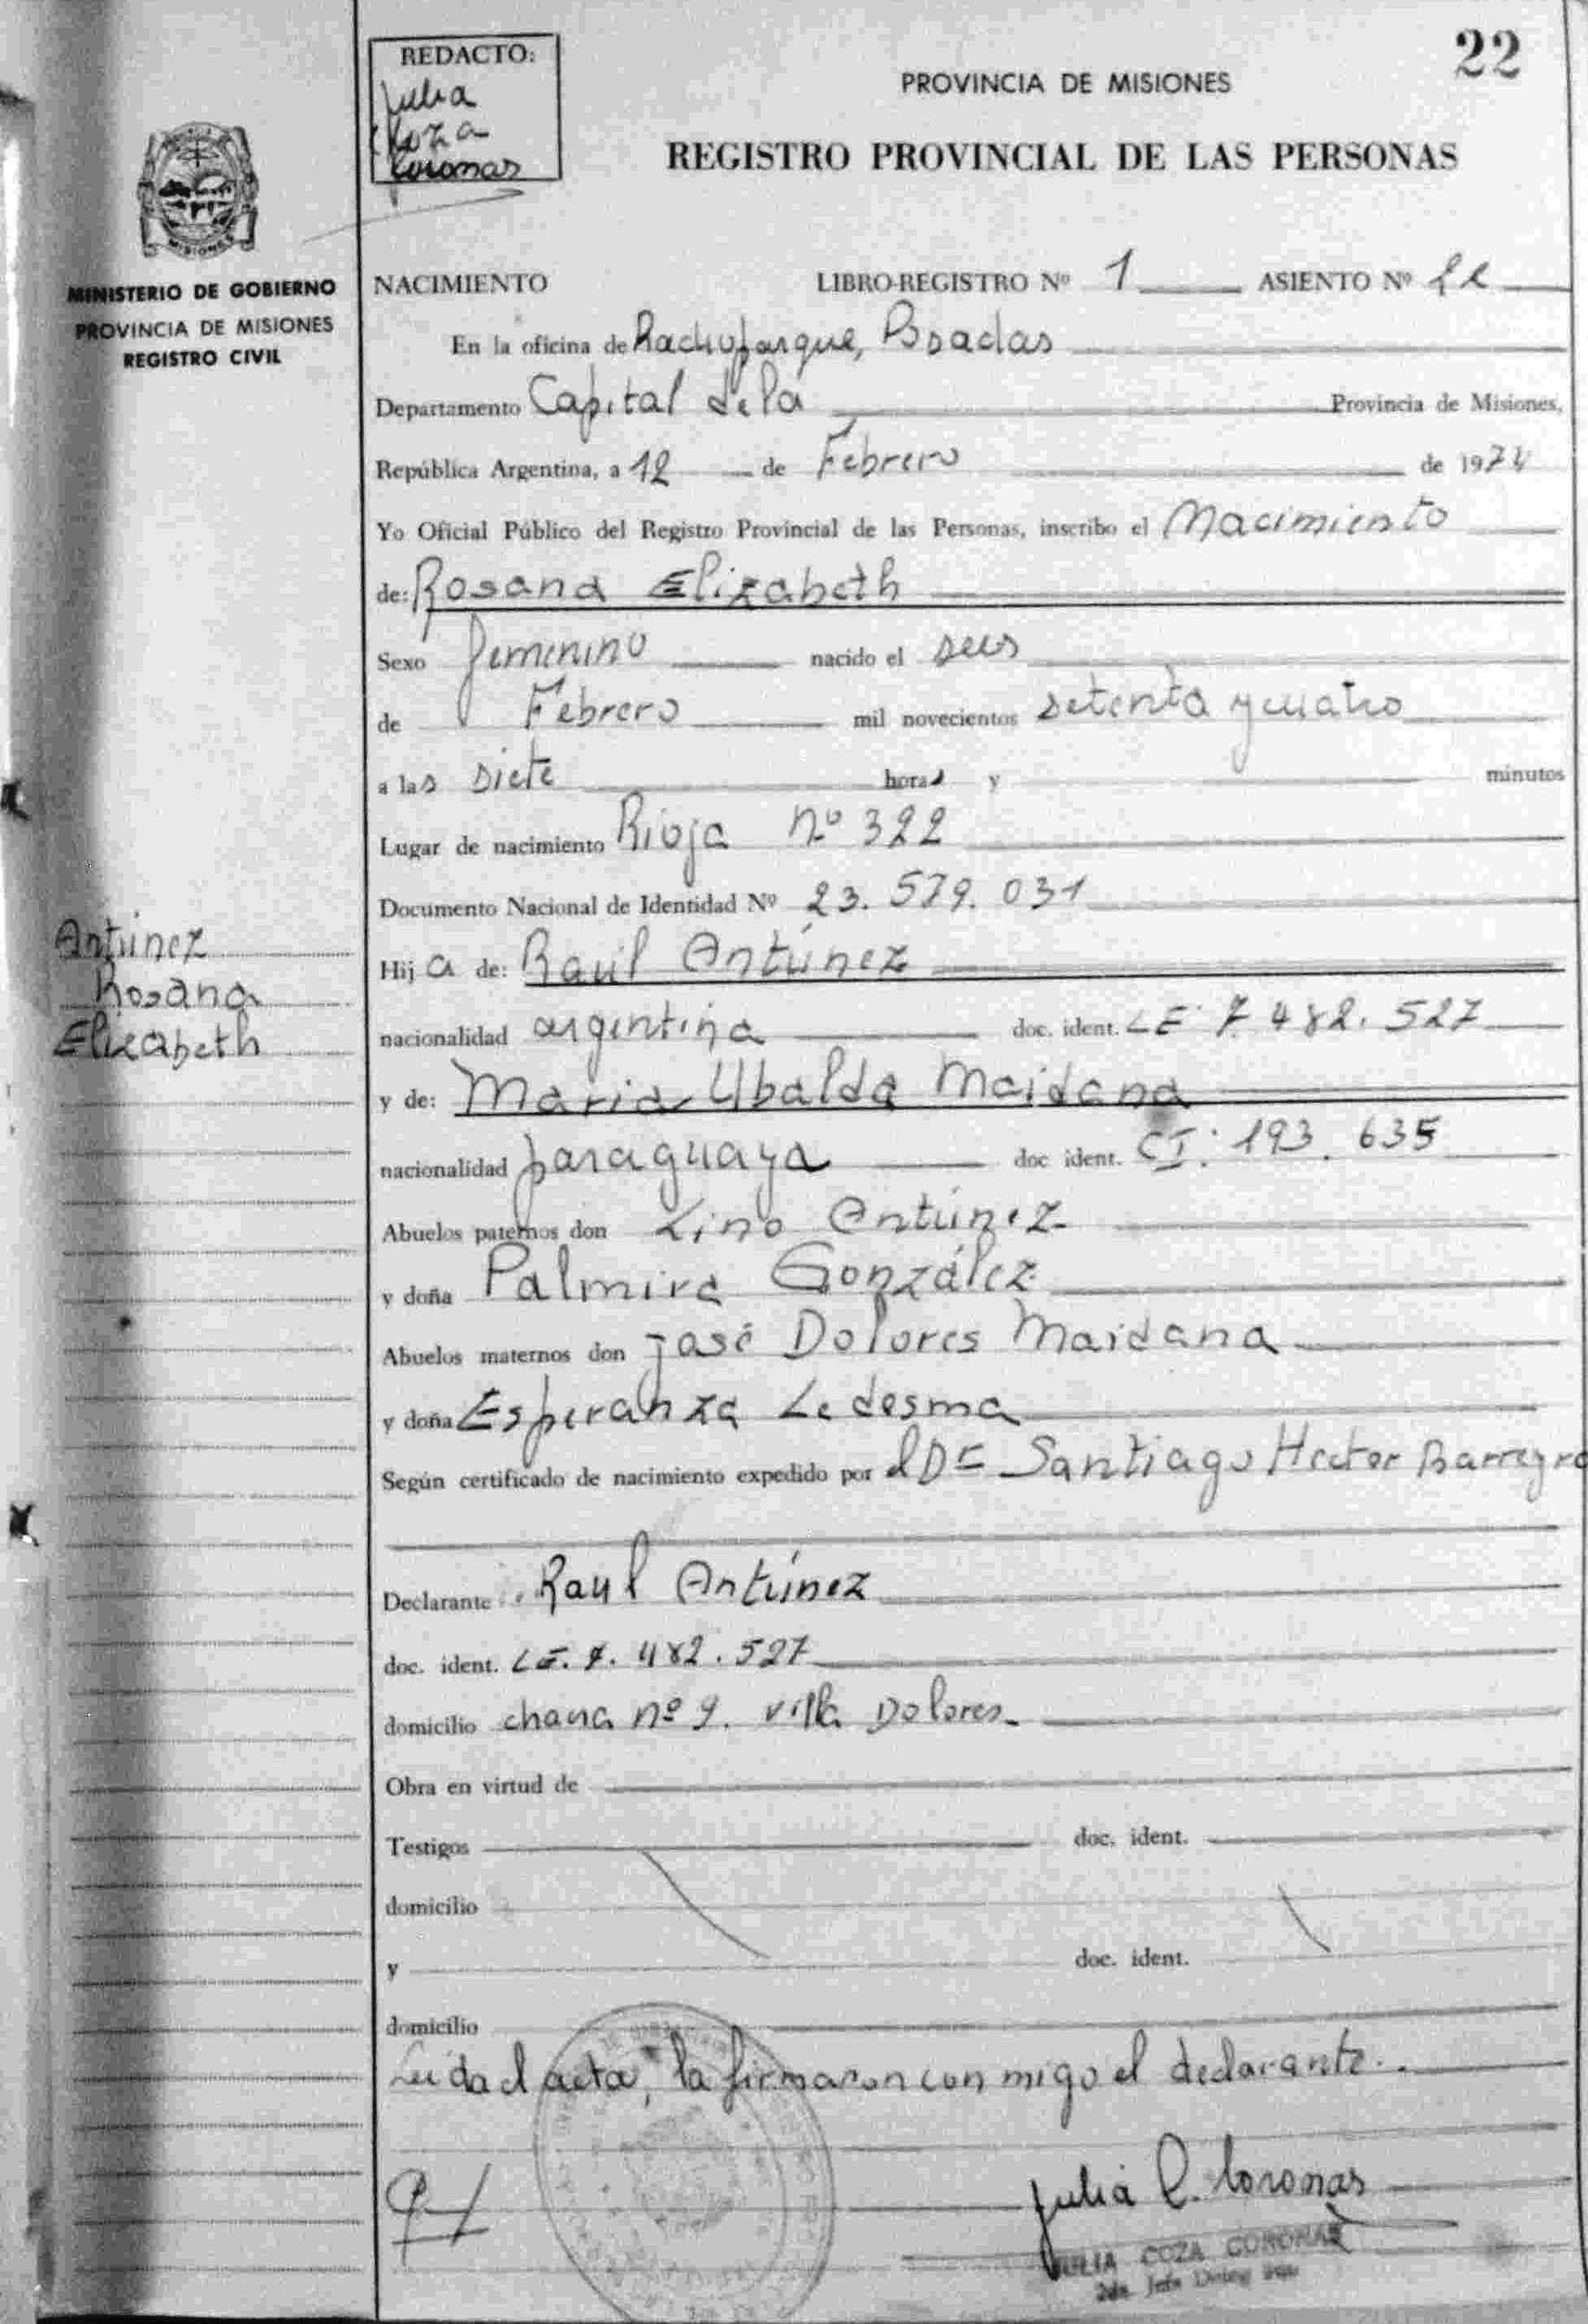 22
REDACTO:
Julia
Coza
Coronas
PROVINCIA DE MISIONES
REGISTRO PROVINCIAL DE LAS PERSONAS
MISIONES
MINISTERIO DE GOBIERNO
PROVINCIA DE MISIONES
REGISTRO CIVIL
NACIMIENTO LIBRO-REGISTRO Nº 1 ASIENTO Nº 22
En la oficina de Posadas
Departamento Capital de la Provincia de Misiones,
República Argentina, a 12 de Febrero de 1974
Yo Oficial Público del Registro Provincial de las Personas, inscribo el Nacimiento
de: Rosana Elizabeth
Sexo femenino nacido el seis
de Febrero mil novecientos setenta y cuatro
a las siete horas y minutos
Lugar de nacimiento Rioja nº 322
Documento Nacional de Identidad Nº 23.579.031
Antúnez
Rosana
Elizabeth
Hija de: Raúl Antúnez
nacionalidad argentina doc. ident. LE 7.482.527
y de: Maria Ubalda Maidana
nacionalidad paraguaya doc ident. CI: 193.635
Abuelos paternos don Lino Antúnez
y doña Palmira González
Abuelos maternos don José Dolores Maidana
y doña Esperanza Ledesma
Según certificado de nacimiento expedido por el Dr Santiago Hector Barreyro
Declarante Raul Antúnez
doc. ident. LE. 7.482.527
domicilio nº 9. Villa Dolores
Obra en virtud de
Testigos doc. ident.
domicilio
y doc. ident.
domicilio
Leida el acta, la firmaron con migo el declarante.
Julia C. Coronas
JULIA COZA CORONAS